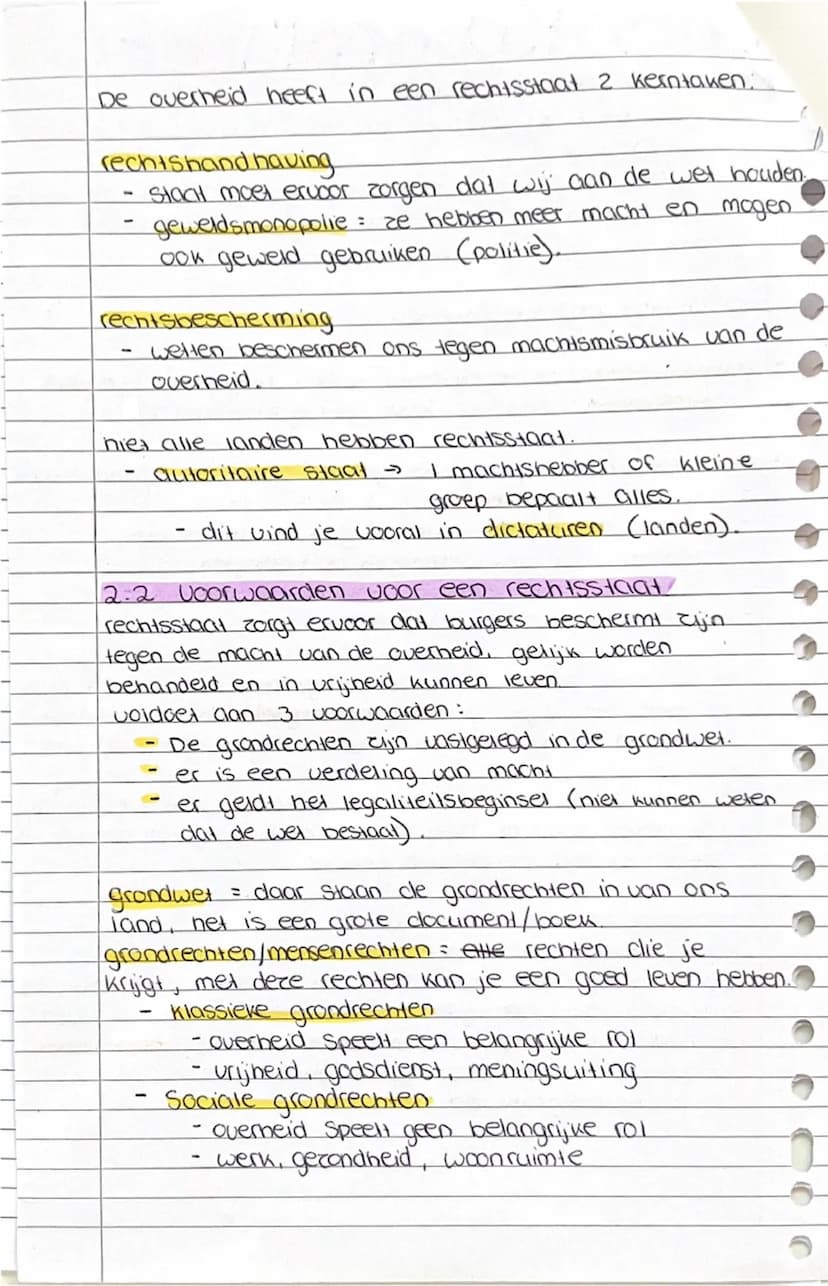 De overheid heeft in een rechtsstaat 2 kerntaken:
rechtshandhaving
- staat moet ervoor zorgen dat wij aan de wet houden.
- geweldsmonopolie = ze hebben meer macht en mogen
ook geweld gebruiken (politie).
rechtsbescherming
- wetten beschermen ons tegen machtsmisbruik van de
overheid.
niet alle landen hebben rechtsstaat.
- autoritaire staat → 1 machtshebber of kleine
groep bepaalt alles.
- dit vind je vooral in dictaturen (landen).
2.2 voorwaarden voor een rechtsstaat
rechtsstaat zorgt ervoor dat burgers beschermt zijn
tegen de macht van de overheid, gelijk worden
behandeld en in vrijheid kunnen leven.
voldoet aan 3 voorwaarden:
- De grondrechten zijn vastgelegd in de grondwet.
- er is een verdeling van macht
- er geldt het legaliteitsbeginsel (niet kunnen weten
dat de wet bestaat).
grondwet = daar staan de grondrechten in van ons
land, het is een grote document/boek.
grondrechten/mensenrechten = rechten die je
krijgt, met deze rechten kan je een goed leven hebben.
- klassieke grondrechten
- overheid speelt een belangrijke rol
- vrijheid, godsdienst, meningsuiting
- Sociale grondrechten
- overheid speelt geen belangrijke rol
- werk, gezondheid, woonruimte